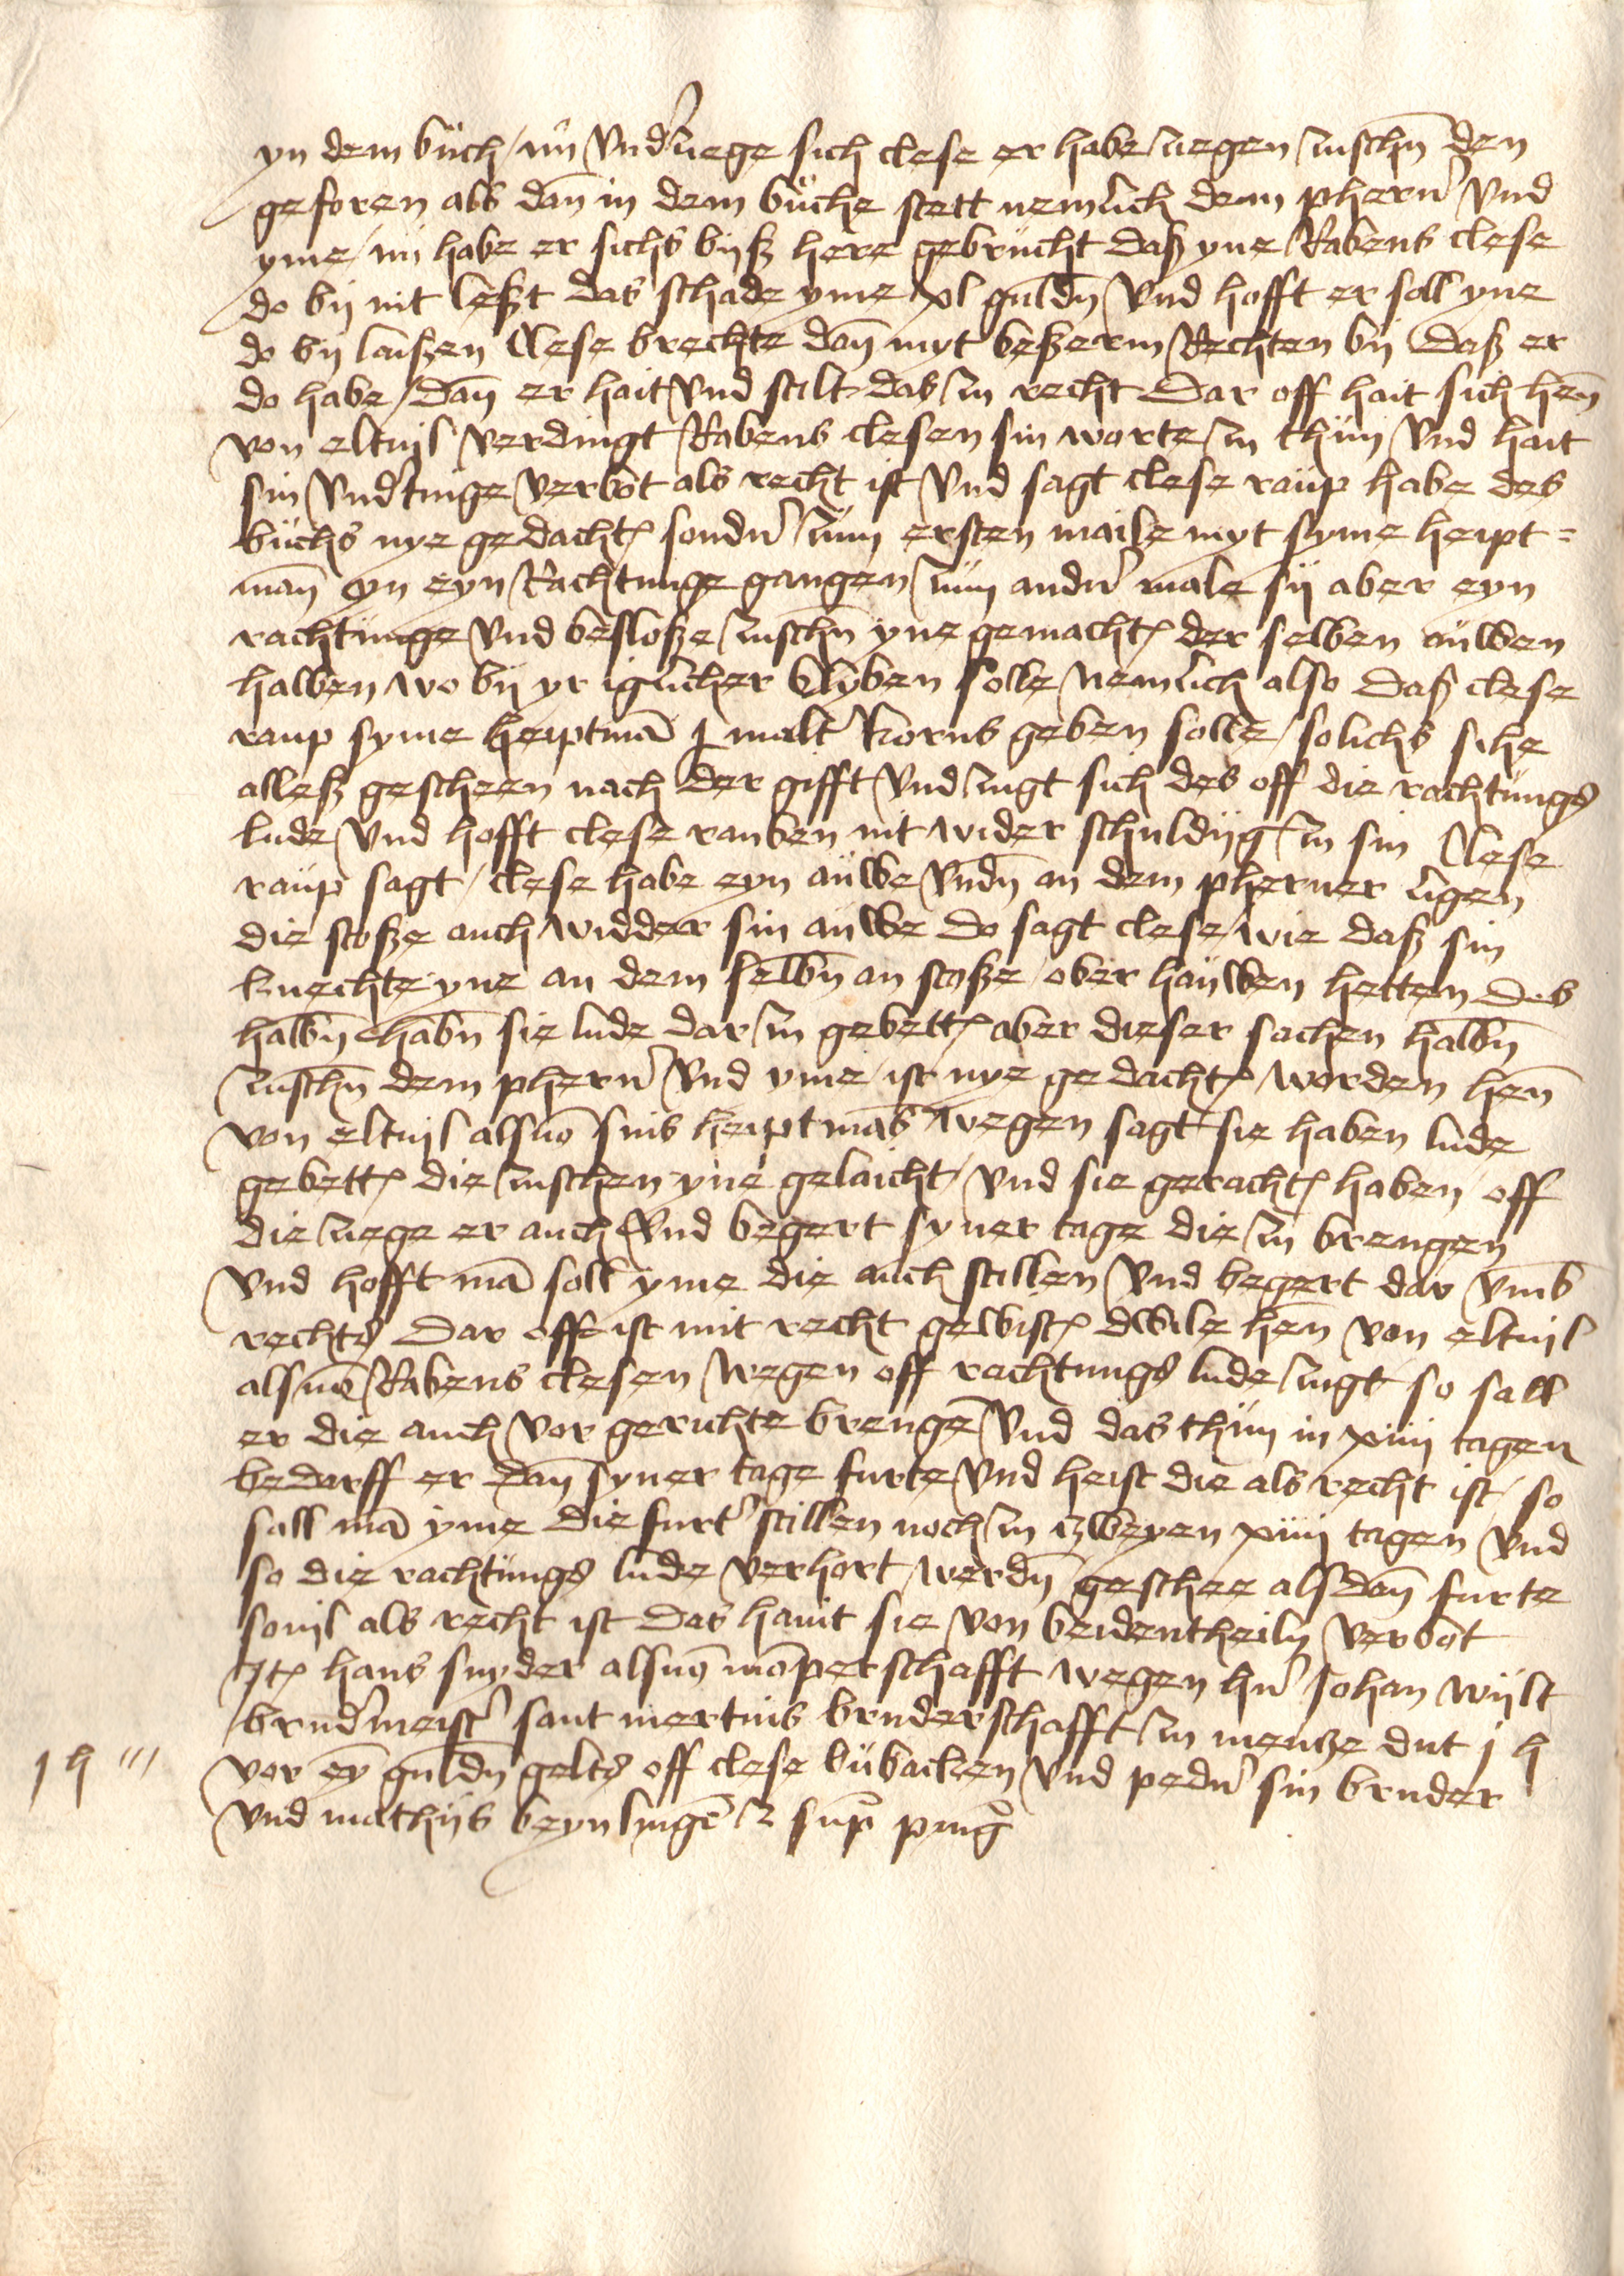 yn dem buch / nu vnd̛ zuege sich clese er habe zuegen zuschn̄ den
geforen als dan̄ in dem buche stett nemlich dem phern̛ vnd
yme / nu habe er sichs byß here gebrucht daß yne Rabens clese
do by nit leßt das schade yme xl guldn̄ vnd hofft er soll yne
do by laißen Clese brechte dan̄ myt beßerm Rechten by daß er
do habe / dan̄ er hait vnd stilt das zu recht Dar off hait sich hen̄
von eltuil verdingt Rabens clesen sin worte zu thun vnd hait
sin vnd̛tinge verbot als recht ist vnd sagt clese raup habe des
buchs nye gedacht sondn̛ zum ersten maile myt syme heipt=
man̄ yn eyn Rachtunge gangen zum andn̛ male sy aber eyn
rachtunge vnd besloße zuschn̄ yne gemacht der selben auwen
halben wo by yr iglicher blyben solle nemlich also daß clese
raup syme heiptmā j malt̛ korns geben solle / solichs sihe
alleß gescheen nach der gifft vnd zugt sich des off die rachtungs
lude vnd hofft clese rauben nit wider schuldig zu sin Clese
raup sagt / clese habe eyn auwe vndn̄ an dem pherner ligen
die stoße auch widder sin auwe do sagt clese wie daß sin
knechte yne an dem selbn̄ an stoße / ober hauwen hetten des
halbn̄ habn̄ sie lude dar zu gebett aber dieser sachen halbn̄
zuschn̄ dem phern̛ vnd yme ist nye gedacht worden hen̄
von eltuil als uō sins heiptmās wegen sagt sie haben lude
gebett die zuschen yne gelaicht vnd sie geracht haben / off
die zuege er auch vnd begert syner tage die zu brengen
vnd hofft mā soll yme die auch stillen vnd begert dar vmb
rechts Dar off ist mit recht gewist dwile hen̄ von eltuil
als uō Rabens clesen wegen off rachtungs lude zugt so sall
er die auch vor gerichte brengē vnd das thun in xiiij tagen
bedarff er dan̄ syner tage furte vnd heist die als recht ist / so
sall mā yme die furt̛ stillen noch zu zweyen xiiij tagen vnd
so die rachtungs lude verhort werdn̄ geschee als dan̄ furte
souil als recht ist das hant sie von beiden theiln verbot
Jt hans snyder als uō mōperschafft wegen hn̛ Johan wijlt
brud̛meist̛ sant mertins bruderschafft zu mentze dut j h
j h ///
vor eȳ guldn̄ gelts off clese bubachen vnd pedn̛ sin bruder
vnd mathijs beynlingē z sup̄ pͥmū